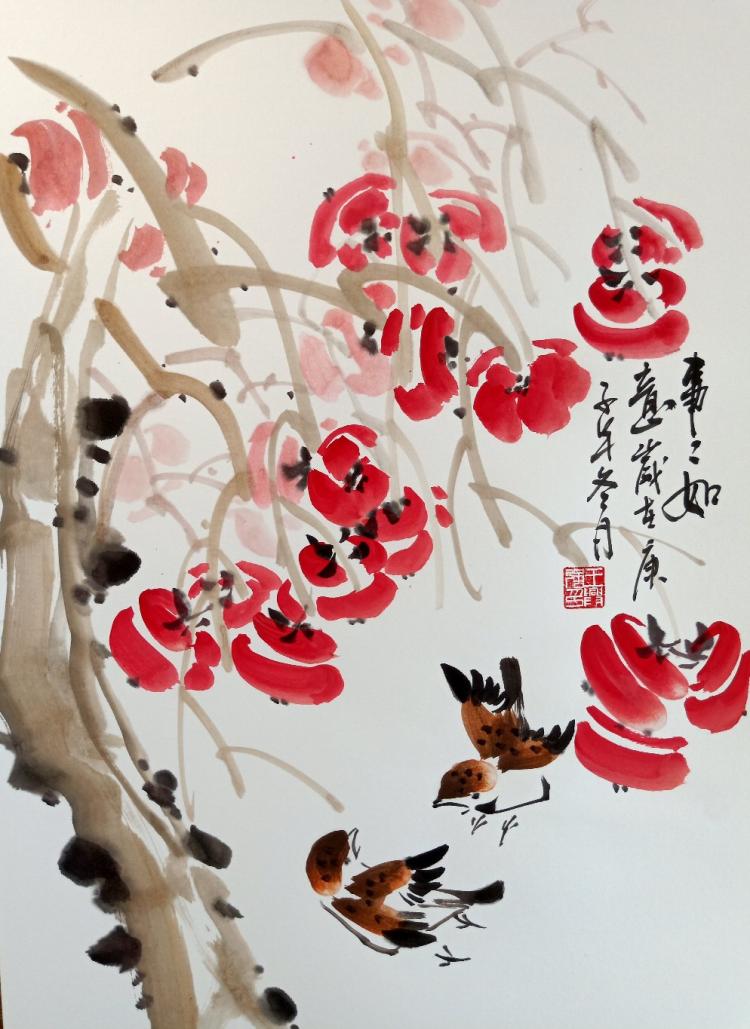 事〻如
意歲在庚
子年冬月